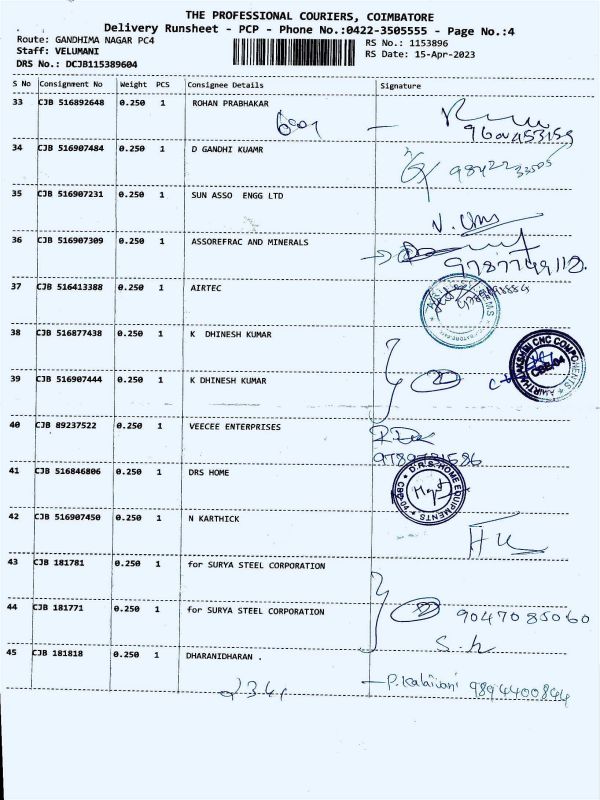 THE PROFESSIONAL COURIERS, COIMBATORE
Delivery Runsheet - PCP - Phone No.:0422-3505555 - Page No.:4
Route: GANDHIMA NAGAR PC4 RS No.: 1153896
Staff: VELUMANI RS Date: 15-Apr-2023
DRS No.: DCJB115389604
S No Consignment No Weight PCS Consignee Details Signature
33 CJB 516892648 0.250 1 ROHAN PRABHAKAR
34 CJB 516907484 0.250 1 D GANDHI KUAMR
35 CJB 516907231 0.250 1 SUN ASSO ENGG LTD
V. Uma
36 CJB 516907309 0.250 1 ASSOREFRAC AND MINERALS
37 CJB 516413388 0.250 1 AIRTEC
38 CJB 516877438 0.250 1 K DHINESH KUMAR
AMIRTHALAKSHMI CNC COMPONENTS CBE-04
39 CJB 516907444 0.250 1 K DHINESH KUMAR
2
40 CJB 89237522 0.250 1 VEECEE ENTERPRISES
41 CJB 516846806 0.250 1 DRS HOME
D.R.S. HOME EQUIPMENTS CBE-04
42 CJB 516907450 0.250 1 N KARTHICK
43 CJB 181781 0.250 1 for SURYA STEEL CORPORATION
44 CJB 181771 0.250 1 for SURYA STEEL CORPORATION
2 9047085060
45 CJB 181818 0.250 1 DHARANIDHARAN .
2341 P. Kalaivani 9894400844